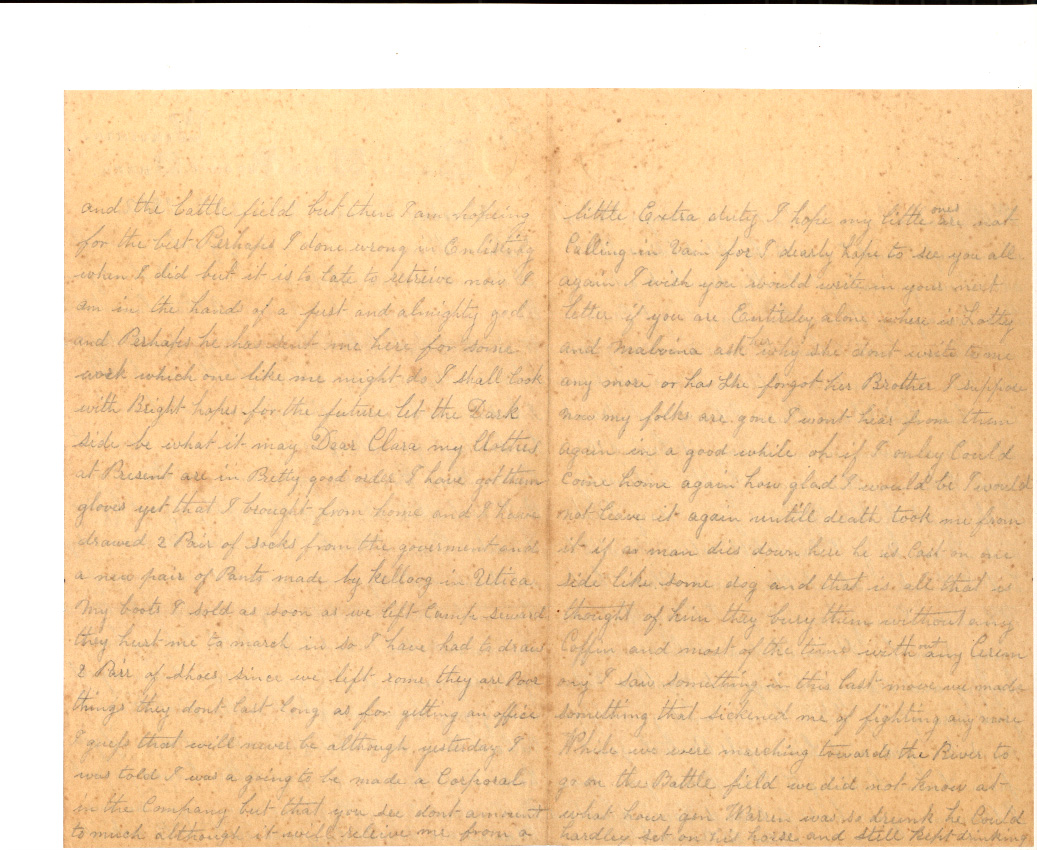 and the battle field but then I am hopeing
for the best Perhaps I done wrong in Enlisting
when I did but it is to late to retreive now I
am in the hand of a just and almighty god
and Perhaps he has sent me here for some
work which one like me might do I shall look
with Bright hopes for the future let the Dark
side be what it may Dear Clara my Clothes
at Present are in Pretty good order I have got them
gloves yet that I brought from home and I have
drawed 2 Pair of socks from the goverment and
a new pair of Pants made by Kellogg in Utica
My boots I sold as soon as we left Camp
they hurt me to march in so I have had to draw
2 Pair of shoes since we left they are Poor
things they dont last long as for getting an office
I guess that will never be although yesterday I
was told I was a going to be made a Corporal
in the Company but that you see dont amount
to much although it will releive me from a
little Extra duty I hope my little ones are not
Calling in Vain for I dearly hope to see you all
again I wish you would write in your next
letter if you are Entireley alone where is Lottey
and Malvina ask why she dont write to me
any more or has she forgot her Brother I suppose
now my folks are gone I wont hear from them
again in a good while oh if I onley Could
Come home again how glad I would be I would
not leave it again untill death took me from
it if a man dies down here he is Cast on one
side like some dog and that is all that is
thought of him they bury them without any
Coffin and most of the time without any Cerem
ony I saw something in this last move we made
something that sickened me of fighting any more
While we were marching towards the River to
go on the Battle field we did not know at
what hour gen Warren was so drunk he Could
hardley set on his horse and still kept drinking